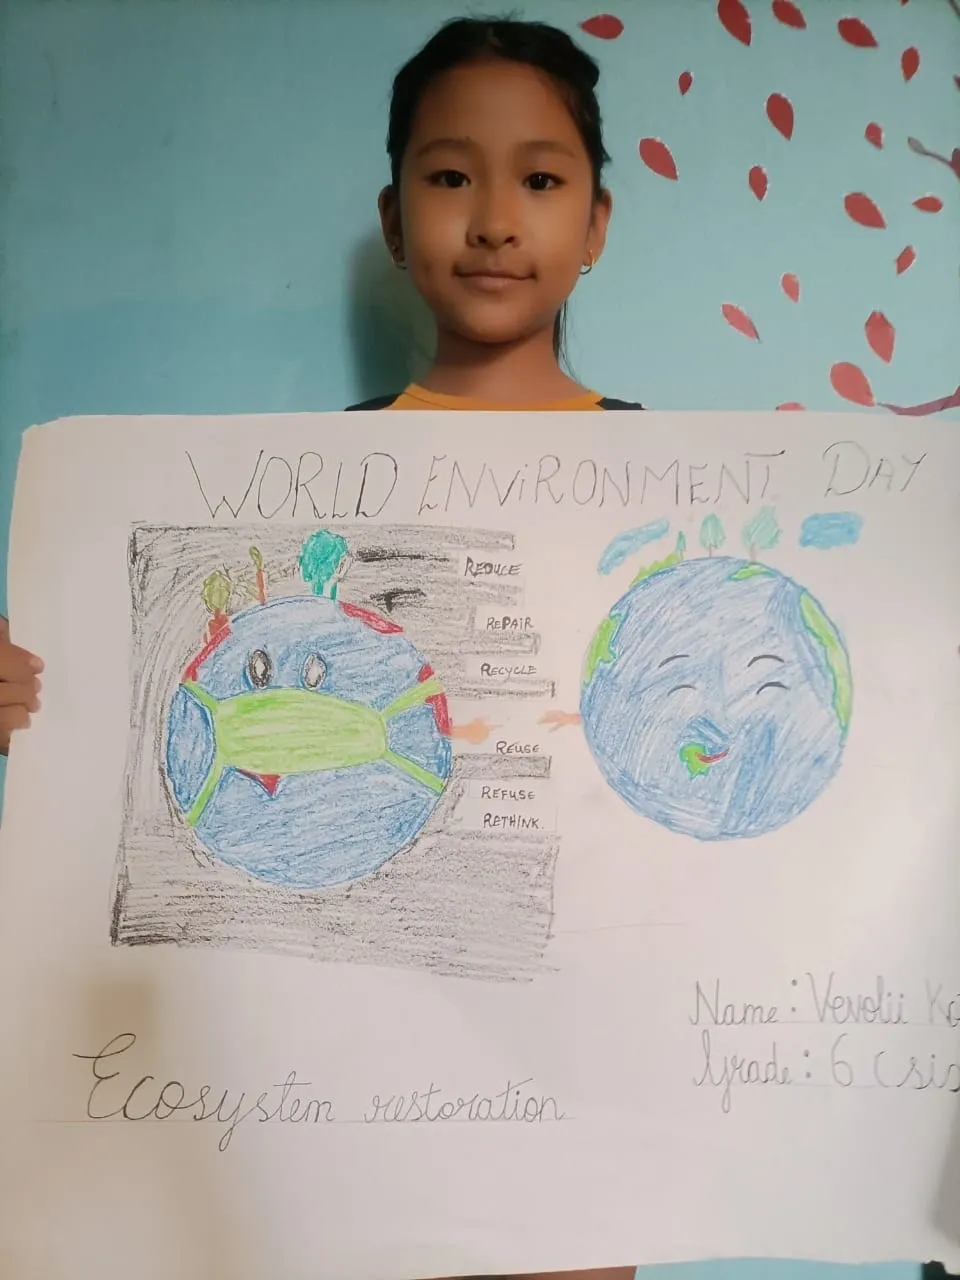 WORLD ENVIRONMENT DAY
REDUCE
REPAIR
RECYCLE
REUSE
REFUSE
RETHINK.
Name: Vevolii
Grade: 6 (six
Ecosystem restoration